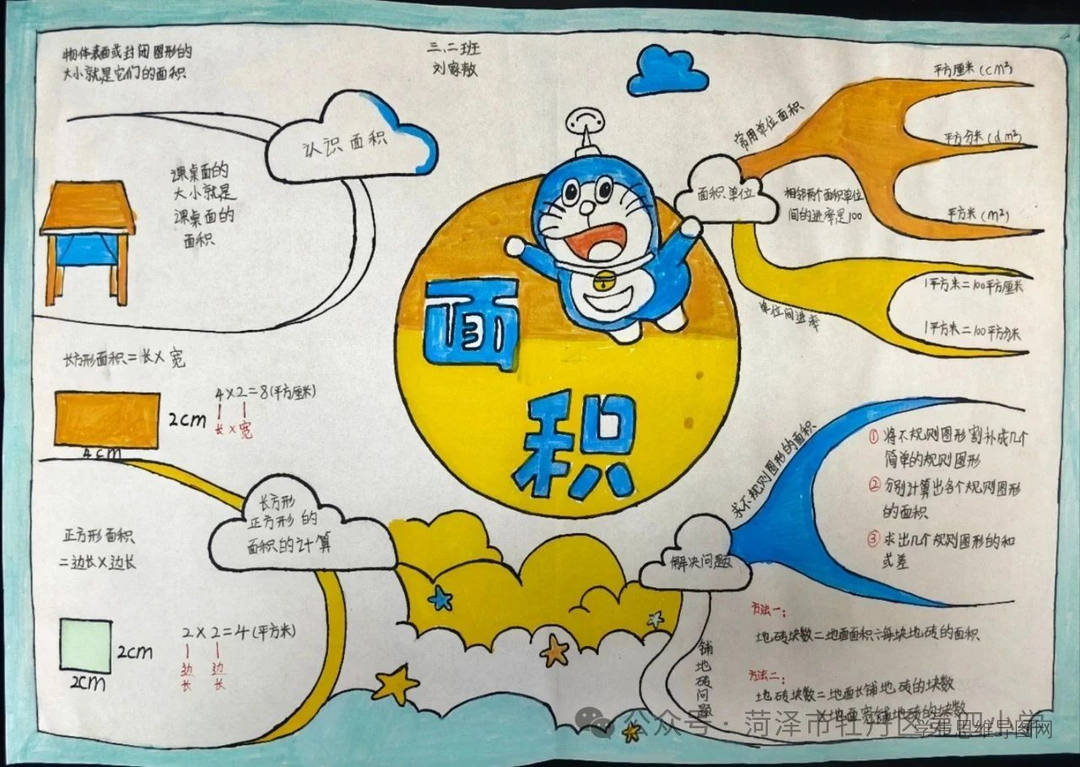 物体表面或封闭图形的
大小就是它们的面积
三、二班
刘家敖
认识面积
课桌面的
大小就是
课桌面的
面积
面积
常用单位面积
平方厘米(cm²)
平方分米(dm²)
平方米(m²)
面积单位
相邻两个面积单位
间的进率是100
单位间进率
1平方米=100平方厘米
1平方米=100平方分米
长方形面积=长×宽
4×2=8(平方厘米)
长×宽
2cm
4cm
长方形
正方形的
面积的计算
正方形面积
=边长×边长
2×2=4(平方米)
边长 边长
2cm
2cm
求不规则图形的面积
解决问题
①将不规则图形割补成几个
简单的规则图形
②分别计算出各个规则图形
的面积
③求出几个规则图形的和
或差
铺地砖问题
方法一:
地砖块数=地面面积÷每块地砖的面积
方法二:
地砖块数=地面长铺地砖的块数
×地面宽铺地砖的块数
公众号·菏泽市牡丹区第四小学
思维导图网